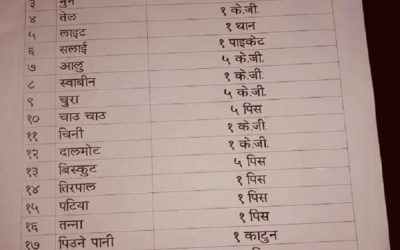 ३ नुन
४ तेल १ के.जी.
५ लाइट १ थान
६ सलाई १ पाइकेट
७ आलु ५ के.जी.
८ स्वाबीन १ के.जी.
९ चुरा ५ के.जी.
१० चाउ चाउ ५ पिस
११ चिनी १ के.जी.
१२ दालमोट १ के.जी.
१३ बिस्कुट ५ पिस
१४ तिरपाल १ पिस
१५ पटिया १ पिस
१६ तन्ना १ पिस
१७ पिउने पानी १ काटुन